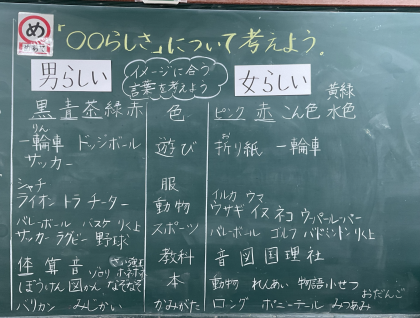 め
めあて
「○○らしさ」について考えよう。
男らしい
イメージに合う
言葉を考えよう
女らしい
黒 青 茶 緑 赤
色
ピンク 赤 こん色 水色
黄緑
一輪車 ドッジボール
りん
サッカー
遊び
折り紙 一輪車
お
服
シャチ
ライオン トラ チーター
動物
イルカ ウマ
ウサギ イヌ ネコ ウーパールーパー
バレーボール バスケ りく上
サッカー ラグビー 野球
スポーツ
バレーボール ゴルフ バドミントン りく上
体 算 音
教科
音 図 国 理 社
ぼうけん 図かん なぞなぞ
本
動物 れんあい 物語 小せつ
バリカン みじかい
かみがた
ロング ポニーテール みつあみ
おだんご